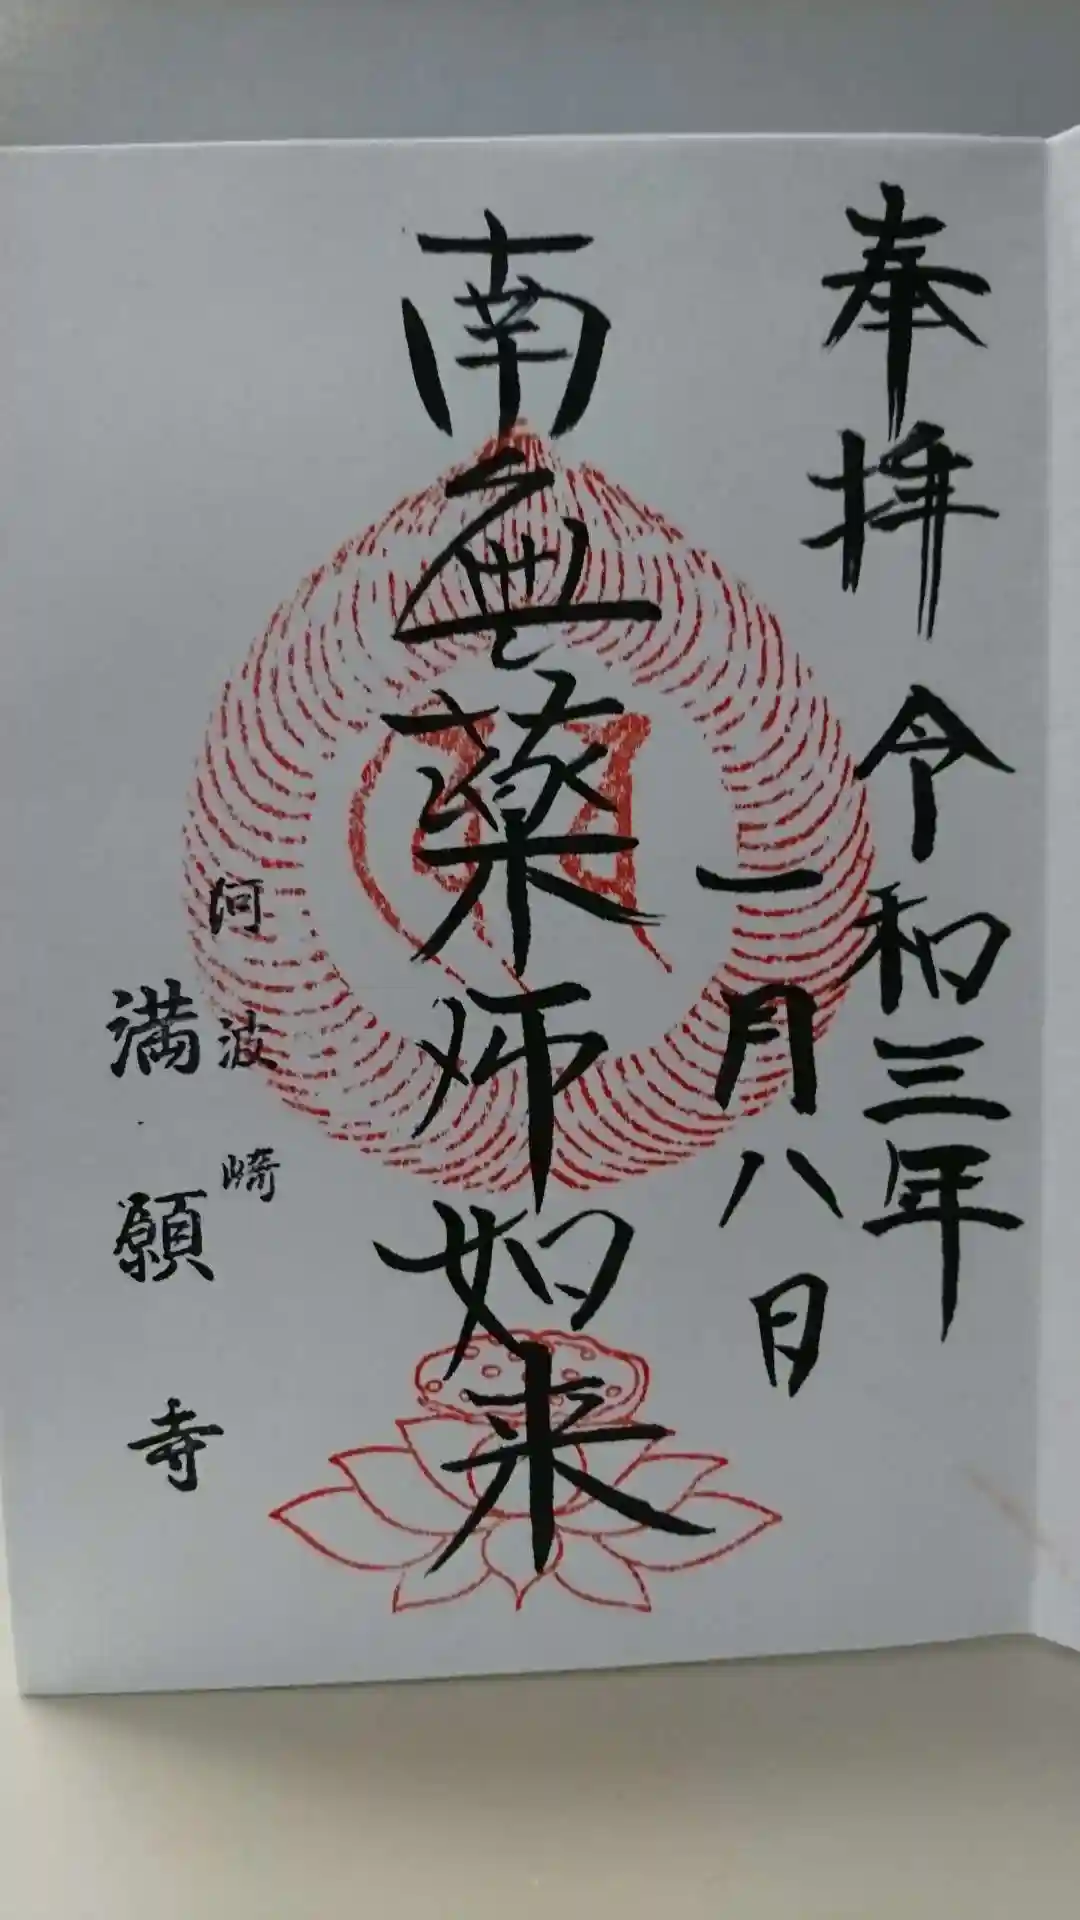 奉拝
令和三年
一月八日
南無薬師如来
河波崎
満願寺